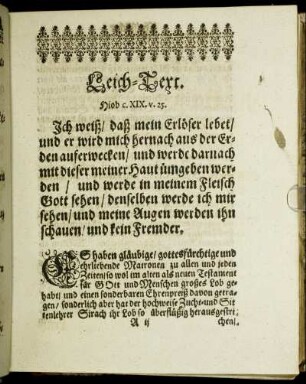 Leich-Text.
Hiob c. XIX. v. 25.
Ich weiß/ daß mein Erlöser lebet/
und er wird mich hernach aus der Er-
den auferwecken/ und werde darnach
mit dieser meiner Haut umgeben wer-
den/ und werde in meinem Fleisch
Gott sehen/ denselben werde ich mir
sehen/ und meine Augen werden ihn
schauen/ und kein Fremder.
ES haben gläubige/ gottesfürchtige und
ehrliebende Matronen zu allen und jeden
Zeiten/ so wol im alten als neuen Testament
für GOtt und Menschen großes Lob ge-
habt/ und einen sonderbaren Ehrenpreiß davon getra-
gen/ sonderlich aber hat der hochweise Zucht- und Sit-
tenlehrer Sirach ihr Lob so überflüßig herausgestri-
A ij
chen/